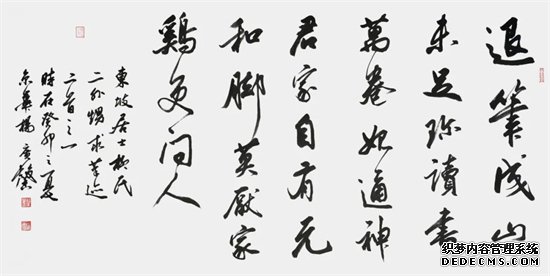 退筆成山
未足珍讀書
萬卷始通神
君家自有元
和脚莫厭家
鷄更問人
東坡居士柳氏
二外甥求筆迹
二首之一
時在癸卯之夏
京華楊廣馨
织梦内容管理系统
DEDECMS.COM